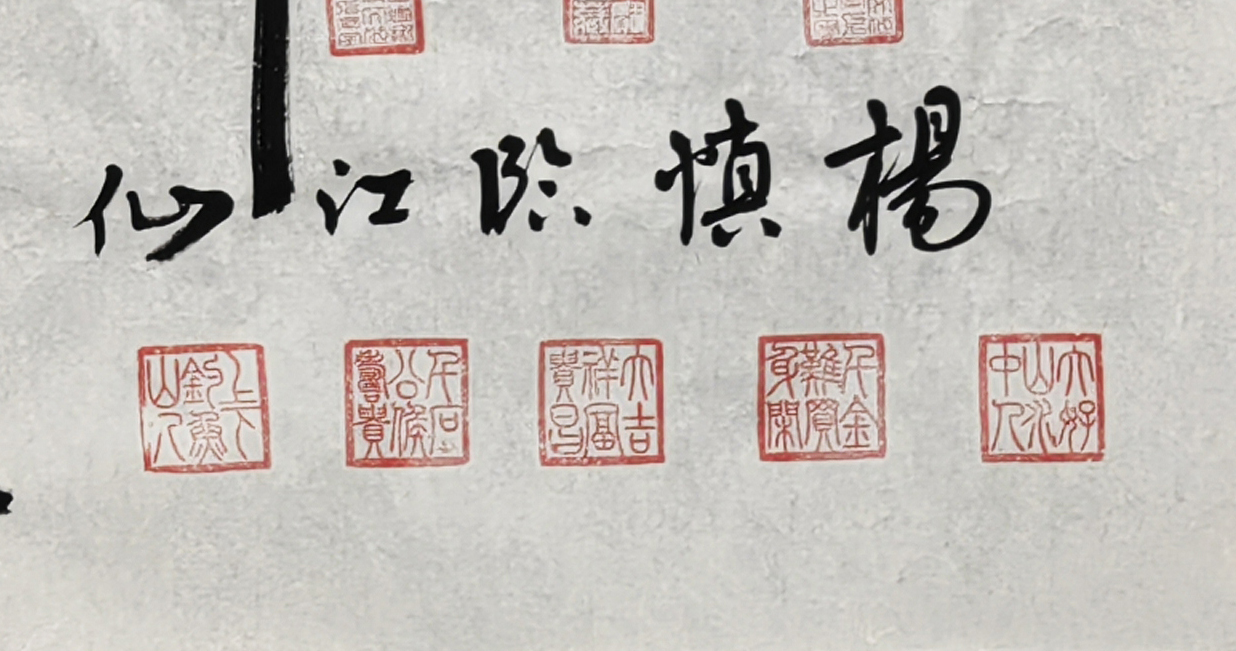 楊慎臨江仙
大好山水中人
千金難買身閑
大吉祥富貴昌
千石公侯壽貴
上下釣魚山人